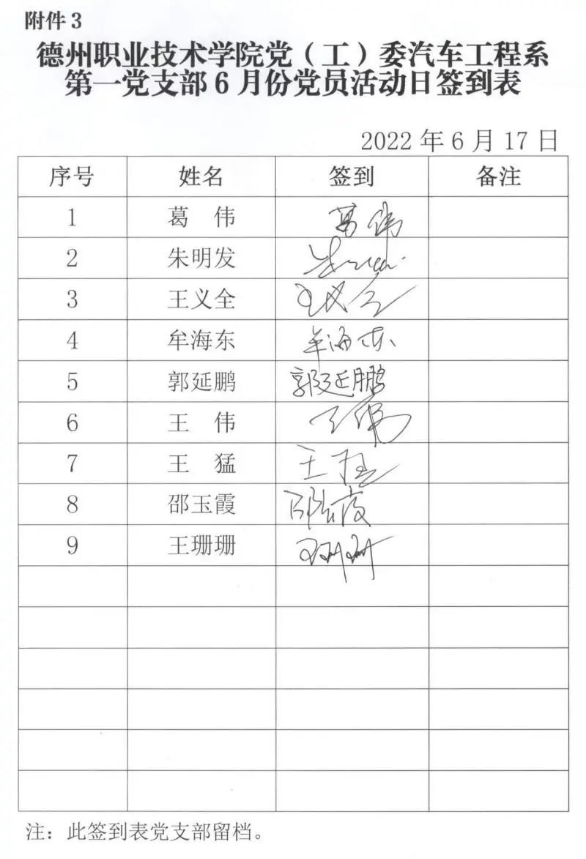 附件3
德州职业技术学院党（工）委汽车工程系
第一党支部6月份党员活动日签到表
2022年6月17日
序号 姓名 签到 备注
1 葛 伟 葛伟
2 朱明发
3 王义全 王义全
4 牟海东 牟海东
5 郭延鹏 郭延鹏
6 王 伟 王伟
7 王 猛 王猛
8 邵玉霞 邵玉霞
9 王珊珊 王珊珊
注：此签到表党支部留档。